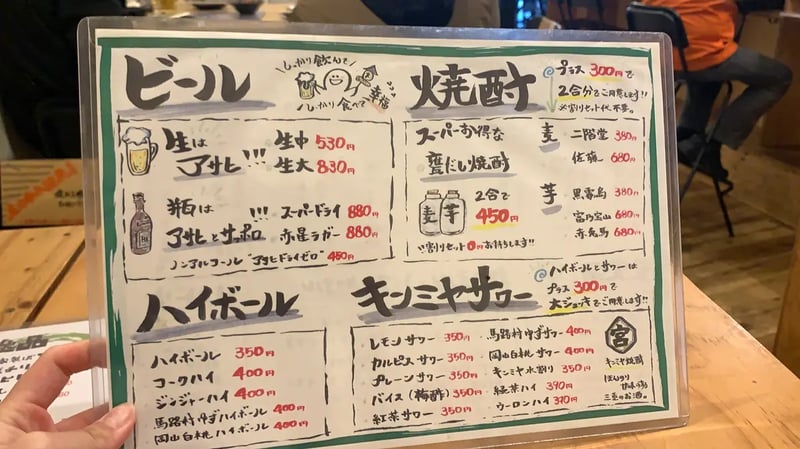 ビール
しっかり飲んで
しっかり食べて
幸福
生は
アサヒ!!!
生中 530円
生大 830円
瓶は
アサヒとサッポロ
!!!
スーパードライ 880円
赤星ラガー 880円
ノンアルコール "アサヒドライゼロ" 450円
焼酎
プラス 300円で
2合分でご用意します!!
※割りセット代、不要。
スーパーお得な
甕だし焼酎
麦
芋
2合で
450円
割りセット0円お持ちします!!
麦
二階堂 380円
佐藤 680円
芋
黒霧島 380円
富乃宝山 680円
赤兎馬 680円
ハイボール
ハイボール 350円
コークハイ 400円
ジンジャーハイ 400円
馬路村ゆずハイボール 400円
岡山白桃ハイボール 400円
キンミヤサワー
ハイボールとサワーは
プラス 300円で
大ジョッキでご用意します!!
レモンサワー 350円
カルピスサワー 350円
プレーンサワー 350円
バイス(梅酢) 350円
紅茶サワー 350円
馬路村ゆずサワー 400円
岡山白桃サワー 400円
キンミヤ水割り 350円
緑茶ハイ 390円
ウーロンハイ 390円
宮
キンミヤ焼酎
ほんのり
三重のお酒。